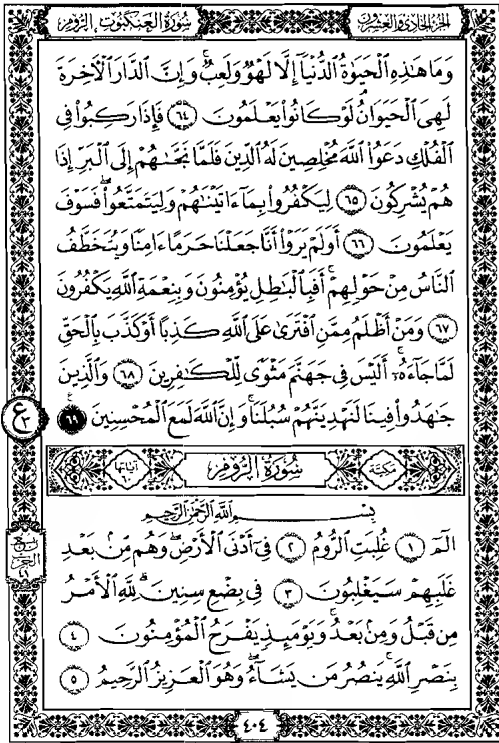 الجزء الحادي والعشرون سورة العنكبوت، الروم
وَمَا هَٰذِهِ الْحَيَوٰةُ الدُّنْيَآ إِلَّا لَهْوٌ وَلَعِبٌ ۚ وَإِنَّ الدَّارَ الْآخِرَةَ
لَهِيَ الْحَيَوَانُ ۚ لَوْ كَانُوا۟ يَعْلَمُونَ ٦٤ فَإِذَا رَكِبُوا۟ فِي
الْفُلْكِ دَعَوُا۟ اللَّهَ مُخْلِصِينَ لَهُ الدِّينَ فَلَمَّا نَجَّىٰهُمْ إِلَى الْبَرِّ إِذَا
هُمْ يُشْرِكُونَ ٦٥ لِيَكْفُرُوا۟ بِمَآ ءَاتَيْنَٰهُمْ وَلِيَتَمَتَّعُوا۟ ۖ فَسَوْفَ
يَعْلَمُونَ ٦٦ أَوَلَمْ يَرَوْا۟ أَنَّا جَعَلْنَا حَرَمًا ءَامِنًا وَيُتَخَطَّفُ
النَّاسُ مِنْ حَوْلِهِمْ ۚ أَفَبِالْبَٰطِلِ يُؤْمِنُونَ وَبِنِعْمَةِ اللَّهِ يَكْفُرُونَ
٦٧ وَمَنْ أَظْلَمُ مِمَّنِ افْتَرَىٰ عَلَى اللَّهِ كَذِبًا أَوْ كَذَّبَ بِالْحَقِّ
لَمَّا جَآءَهُۥٓ ۚ أَلَيْسَ فِي جَهَنَّمَ مَثْوًى لِّلْكَٰفِرِينَ ٦٨ وَالَّذِينَ
جَٰهَدُوا۟ فِينَا لَنَهْدِيَنَّهُمْ سُبُلَنَا ۚ وَإِنَّ اللَّهَ لَمَعَ الْمُحْسِنِينَ ٦٩
ع ٣
مكية سُورَةُ الرُّومِ آياتها
بِسْمِ اللَّهِ الرَّحْمَٰنِ الرَّحِيمِ
الٓمٓ ١ غُلِبَتِ الرُّومُ ٢ فِيٓ أَدْنَى الْأَرْضِ وَهُم مِّنۢ بَعْدِ
غَلَبِهِمْ سَيَغْلِبُونَ ٣ فِي بِضْعِ سِنِينَ ۗ لِلَّهِ الْأَمْرُ
مِن قَبْلُ وَمِنۢ بَعْدُ ۚ وَيَوْمَئِذٍ يَفْرَحُ الْمُؤْمِنُونَ ٤
بِنَصْرِ اللَّهِ ۚ يَنصُرُ مَن يَشَآءُ ۖ وَهُوَ الْعَزِيزُ الرَّحِيمُ ٥
ربع
الحزب
٤١
٤٠٤